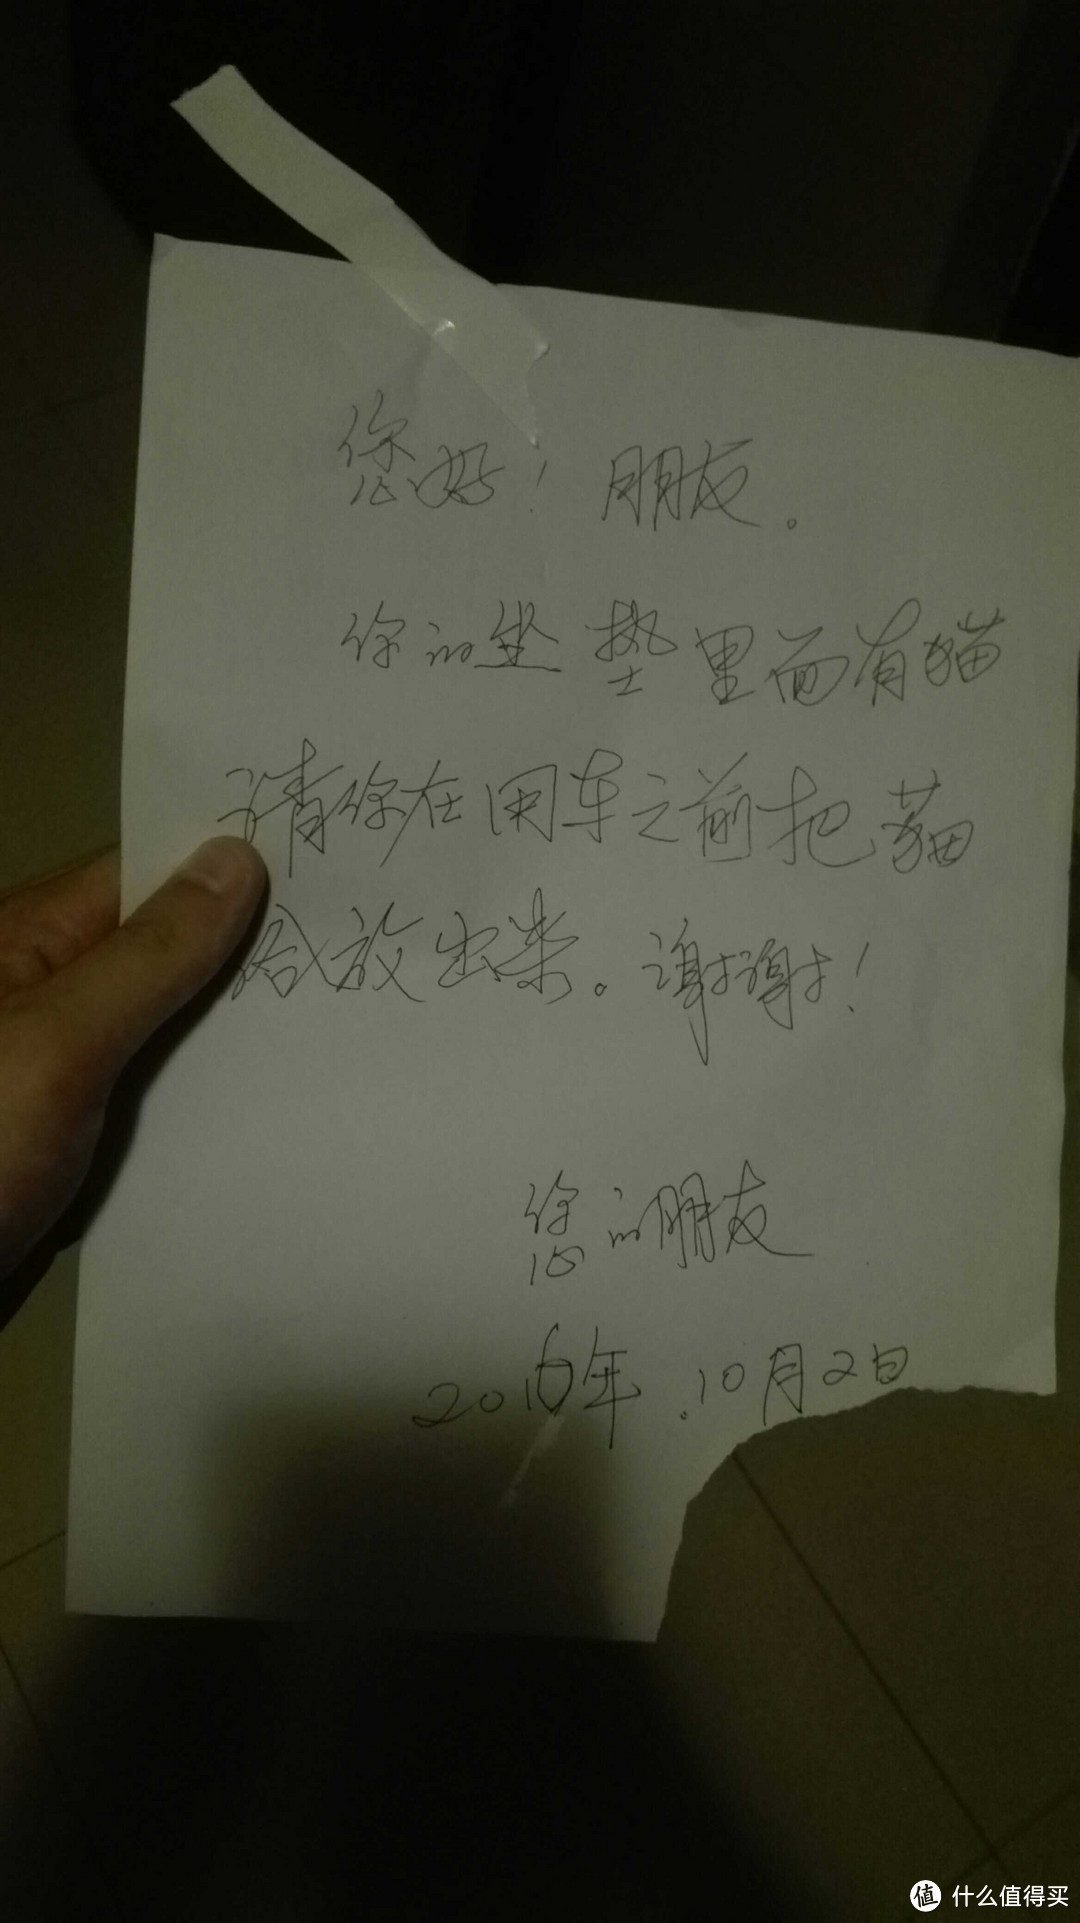 您好！朋友。
你的坐垫里面有猫
请你在用车之前把猫
给放出来。谢谢！
您的朋友
2016年.10月2日
值 什么值得买